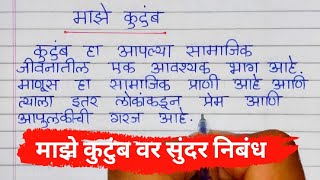 माझे कुटुंब
कुटुंब हा आपल्या सामाजिक
जीवनातील एक आवश्यक भाग आहे.
माणूस हा सामाजिक प्राणी आहे आणि
त्याला इतर लोकांकडून प्रेम आणि
आपुलकीची गरज आहे.
माझे कुटुंब वर सुंदर निबंध